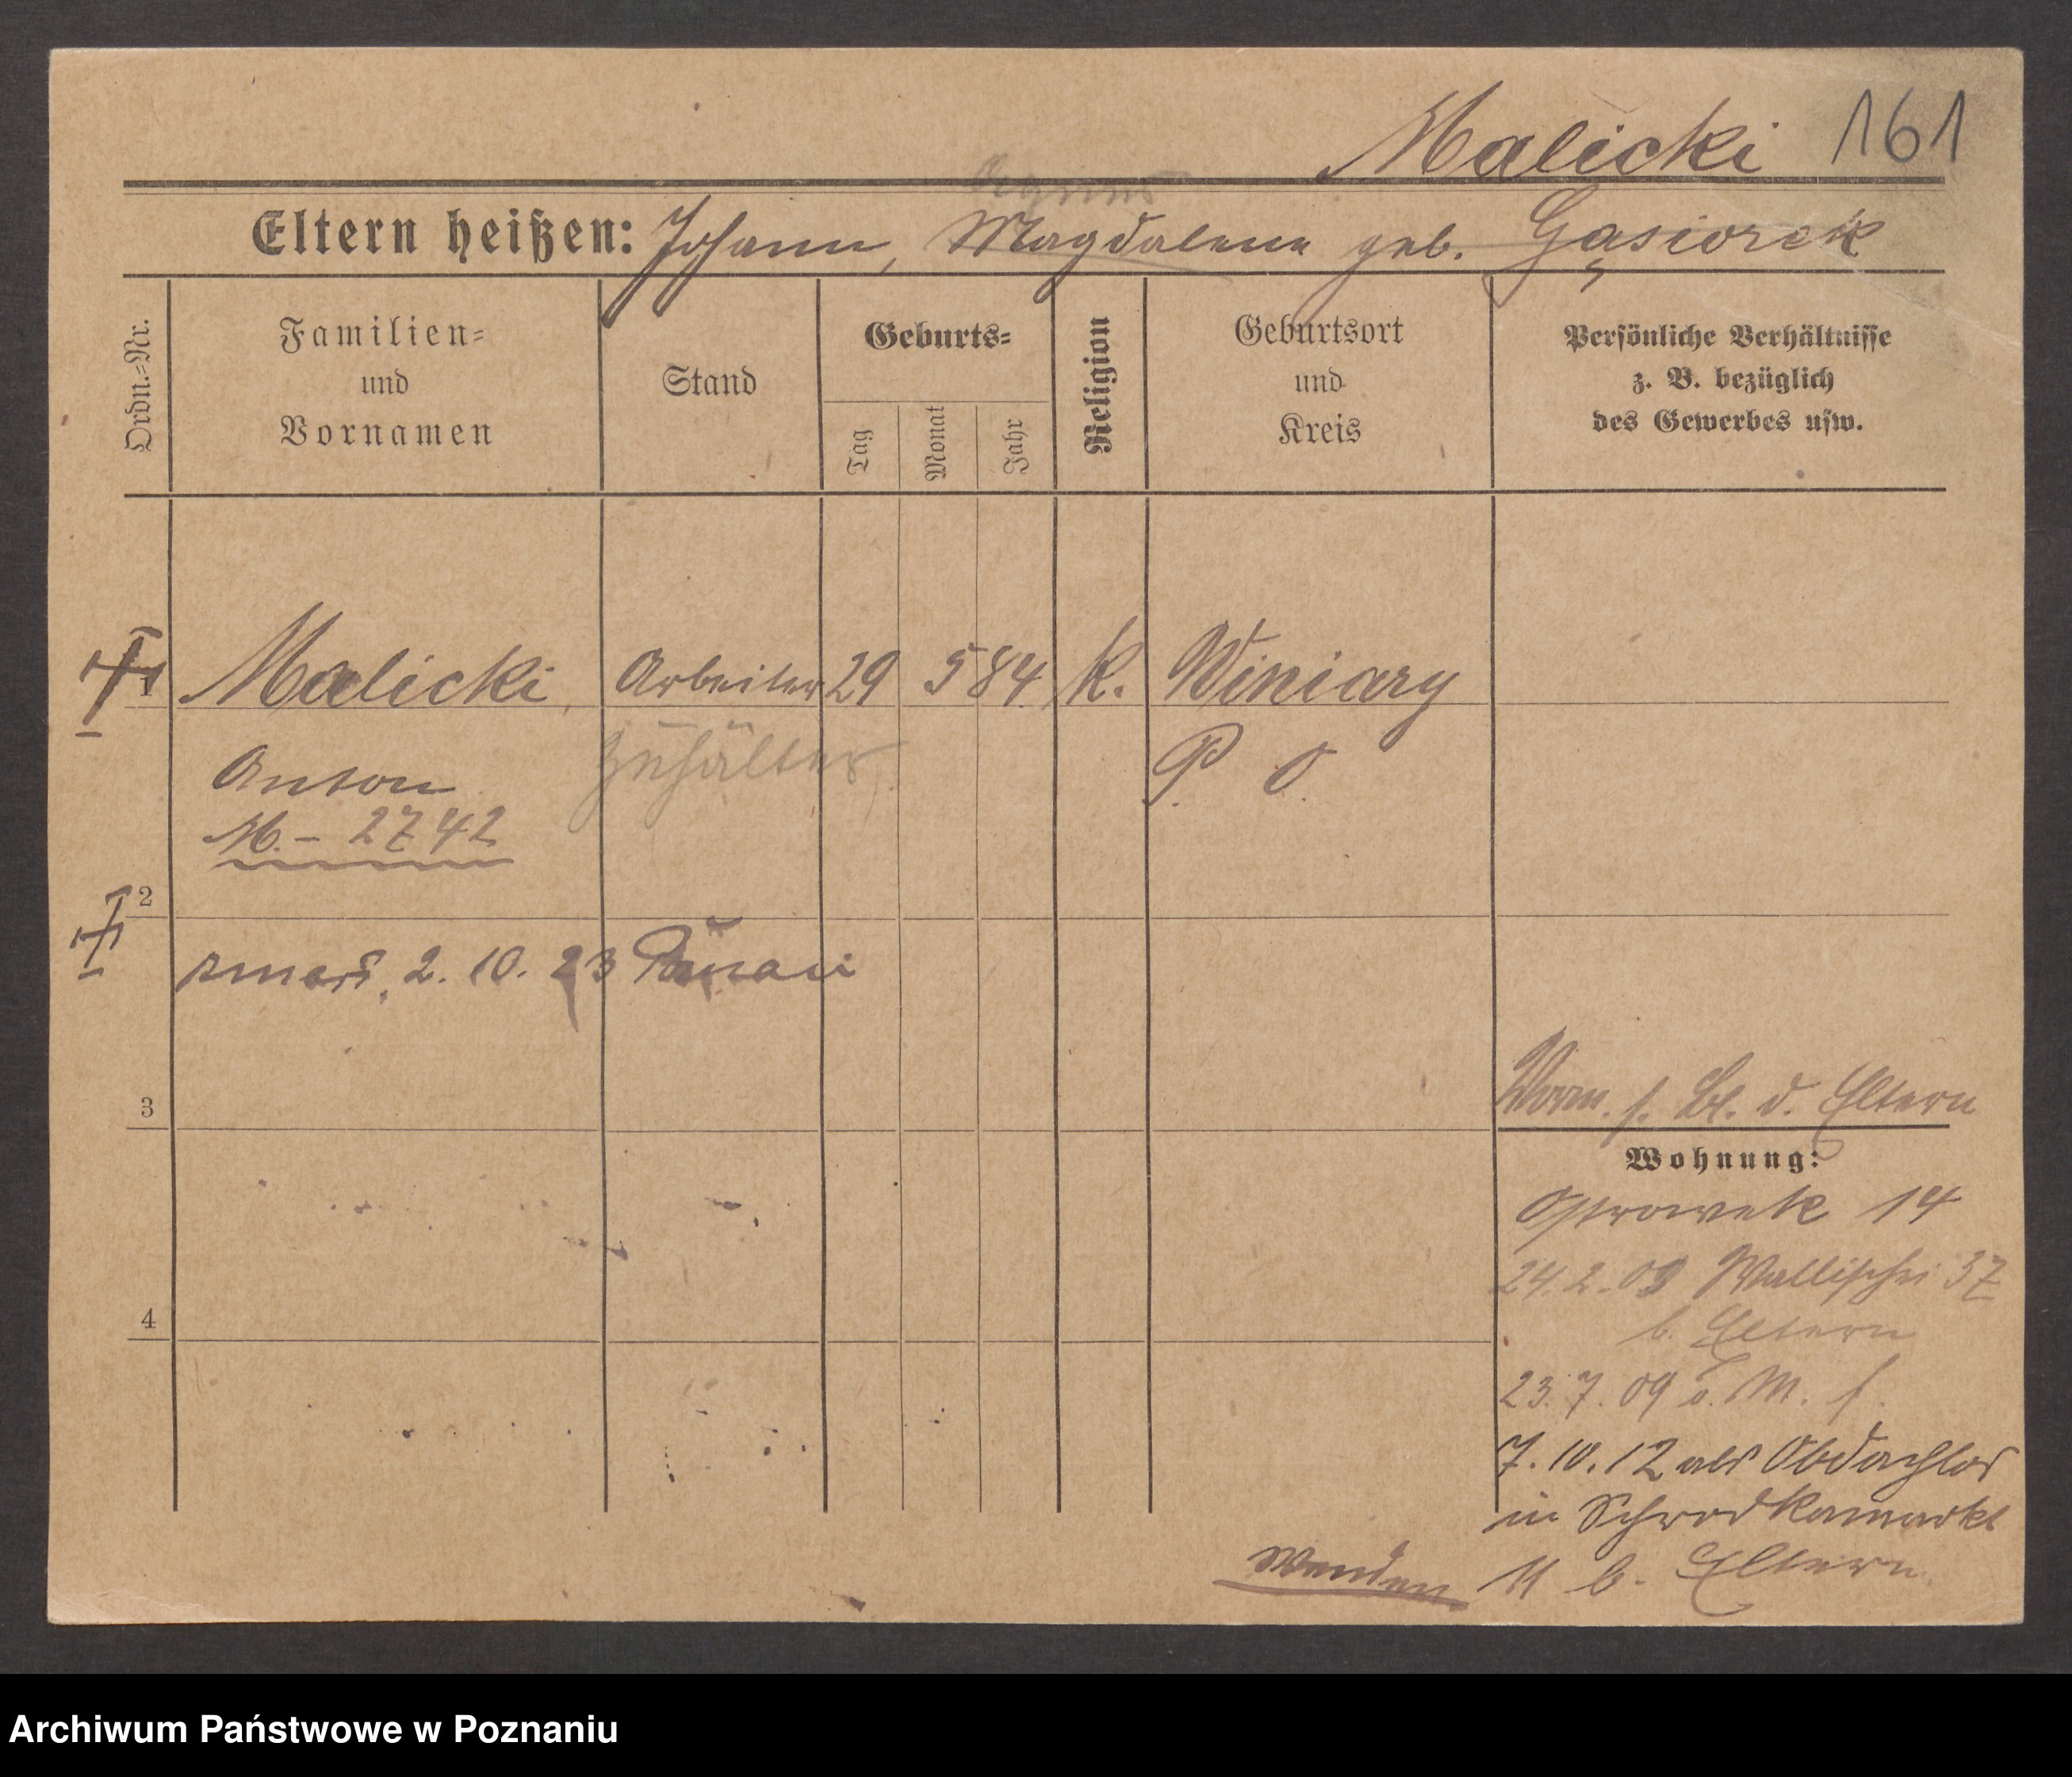 Malicki 161
Eltern heißen: Johann, Magdalena geb. Gąsiorek
Ordn.=Nr.
Familien=
und
Vornamen
Stand
Geburts=
Tag
Monat
Jahr
Religion
Geburtsort
und
Kreis
Persönliche Verhältnisse
z. B. bezüglich
des Gewerbes usw.
1 Malicki Arbeiter 29 5 84 k. Winiary
Anton Zuhälter P. O.
M. - 2742
2
zmarł, 2. 10. 23 Poznań
3
Verm. s. Bl. d. Eltern
Wohnung:
Ostrowek 14
24.2.09 Wallischei 37
b. Eltern
4
23.7.09 o. M. f.
7.10.12 als Obdachlos
in Schrodkamarkt
11 b. Eltern
Wenden
Archiwum Państwowe w Poznaniu